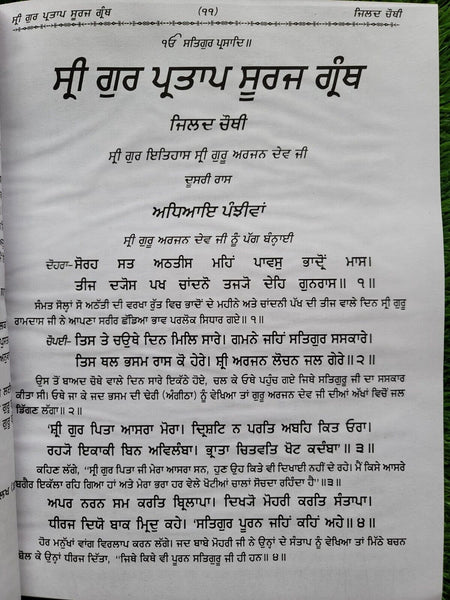 ਸ੍ਰੀ ਗੁਰ ਪ੍ਰਤਾਪ ਸੂਰਜ ਗ੍ਰੰਥ (੧੧) ਜਿਲਦ ਚੌਥੀ
ੴ ਸਤਿਗੁਰ ਪ੍ਰਸਾਦਿ॥
ਸ੍ਰੀ ਗੁਰ ਪ੍ਰਤਾਪ ਸੂਰਜ ਗ੍ਰੰਥ
ਜਿਲਦ ਚੌਥੀ
ਸ੍ਰੀ ਗੁਰ ਇਤਿਹਾਸ ਸ੍ਰੀ ਗੁਰੂ ਅਰਜਨ ਦੇਵ ਜੀ
ਦੂਸਰੀ ਰਾਸ
ਅਧਿਆਇ ਪੰਝੀਵਾਂ
ਸ੍ਰੀ ਗੁਰੂ ਅਰਜਨ ਦੇਵ ਜੀ ਨੂੰ ਪੱਗ ਬੰਨ੍ਹਾਈ
ਦੋਹਰਾ- ਸੋਰਹ ਸਤ ਅਠਤੀਸ ਮਹਿੰ ਪਾਵਸੁ ਭਾਦ੍ਰੋਂ ਮਾਸ।
ਤੀਜ ਦ੍ਯੋਸ ਪਖ ਚਾਂਦਨੋ ਤਜ੍ਯੋ ਦੇਹਿ ਗੁਨਰਾਸ॥੧॥
ਸੰਮਤ ਸੋਲ੍ਹਾਂ ਸੌ ਅਠੱਤੀ ਦੀ ਵਰਖਾ ਰੁੱਤ ਵਿਚ ਭਾਦੋਂ ਦੇ ਮਹੀਨੇ ਅਤੇ ਚਾਂਦਨੀ ਪੱਖ ਦੀ ਤੀਜ ਵਾਲੇ ਦਿਨ ਸ੍ਰੀ ਗੁਰੂ
ਰਾਮਦਾਸ ਜੀ ਨੇ ਆਪਣਾ ਸਰੀਰ ਛੱਡਿਆ ਭਾਵ ਪਰਲੋਕ ਸਿਧਾਰ ਗਏ॥੧॥
ਚੌਪਈ- ਤਿਸ ਤੇ ਚਉਥੇ ਦਿਨ ਮਿਲਿ ਸਾਰੇ। ਗਮਨੇ ਜਹਿਂ ਸਤਿਗੁਰ ਸਸਕਾਰੇ।
ਤਿਸ ਥਲ ਭਸਮ ਰਾਸ ਕੋ ਹੇਰੇ। ਸ਼੍ਰੀ ਅਰਜਨ ਲੋਚਨ ਜਲ ਗੇਰੇ॥੨॥
ਉਸ ਤੋਂ ਬਾਅਦ ਚੌਥੇ ਵਾਲੇ ਦਿਨ ਸਾਰੇ ਇਕੱਠੇ ਹੋਏ, ਚਲ ਕੇ ਓਥੇ ਪਹੁੰਚ ਗਏ ਜਿਥੇ ਸਤਿਗੁਰੂ ਜੀ ਦਾ ਸਸਕਾਰ
ਕੀਤਾ ਸੀ। ਓਥੇ ਜਾ ਕੇ ਜਦ ਭਸਮ ਦੀ ਢੇਰੀ (ਅੰਗੀਠਾ) ਨੂੰ ਵੇਖਿਆ ਤਾਂ ਗੁਰੂ ਅਰਜਨ ਦੇਵ ਜੀ ਦੀਆਂ ਅੱਖਾਂ ਵਿਚੋਂ ਜਲ
ਡਿੱਗਣ ਲੱਗਾ॥੨॥
'ਸ਼੍ਰੀ ਗੁਰ ਪਿਤਾ ਆਸਰਾ ਮੋਰਾ। ਦ੍ਰਿਸਟਿ ਨ ਪਰਤਿ ਅਬਹਿ ਕਿਤ ਓਰਾ।
ਰਹ੍ਯੋ ਇਕਾਕੀ ਬਿਨ ਅਵਿਲੰਬਾ। ਭ੍ਰਾਤਾ ਚਿਤਵਤਿ ਖੋਟ ਕਦੰਬਾ'॥੩॥
ਕਹਿਣ ਲੱਗੇ, "ਸ੍ਰੀ ਗੁਰ ਪਿਤਾ ਜੀ ਮੇਰਾ ਆਸਰਾ ਸਨ, ਹੁਣ ਉਹ ਕਿਤੇ ਵੀ ਦਿਖਾਈ ਨਹੀਂ ਦੇ ਰਹੇ। ਮੈਂ ਕਿਸੇ ਆਸਰੇ
ਬਗੈਰ ਇਕੱਲਾ ਰਹਿ ਗਿਆ ਹਾਂ ਅਤੇ ਮੇਰਾ ਭਰਾ ਹਰ ਵੇਲੇ ਖੋਟੀਆਂ ਚਾਲਾਂ ਸੋਚਦਾ ਰਹਿੰਦਾ ਹੈ"॥੩॥
ਅਪਰ ਨਰਨ ਸਮ ਕਰਤਿ ਬ੍ਰਿਲਾਪਾ। ਦਿਖ੍ਯੋ ਮੋਹਰੀ ਕਰਤਿ ਸੰਤਾਪਾ।
ਧੀਰਜ ਦਿਯੋ ਬਾਕ ਮ੍ਰਿਦੁ ਕਹੇ। 'ਸਤਿਗੁਰ ਪੂਰਨ ਜਹਿਂ ਕਹਿਂ ਅਹੇ'॥੪॥
ਹੋਰ ਮਨੁੱਖਾਂ ਵਾਂਗ ਵਿਰਲਾਪ ਕਰਨ ਲੱਗੇ। ਜਦ ਬਾਬੇ ਮੋਹਰੀ ਜੀ ਨੇ ਉਨ੍ਹਾਂ ਦੇ ਸੰਤਾਪ ਨੂੰ ਵੇਖਿਆ ਤਾਂ ਮਿੱਠੇ ਬਚਨ
ਬੋਲ ਕੇ ਉਨ੍ਹਾਂ ਧੀਰਜ ਦਿੱਤਾ, "ਜਿਥੇ ਕਿਥੇ ਵੀ ਪੂਰਨ ਸਤਿਗੁਰੂ ਜੀ ਹੀ ਹਨ॥੪॥